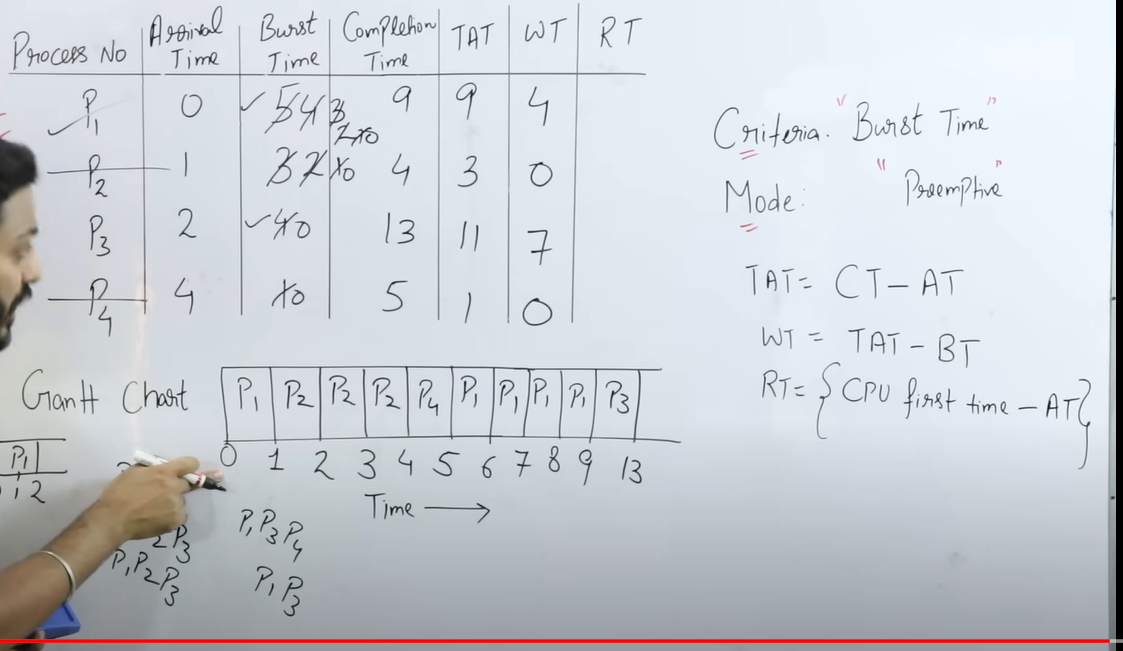 Process No Arrival Time Burst Time Completion Time TAT WT RT
P1 0 5 4 3 2 1 0 9 9 4
P2 1 3 2 1 0 4 3 0
P3 2 4 0 13 11 7
P4 4 1 0 5 1 0
Criteria: "Burst Time"
Mode: "Preemptive"
TAT = CT - AT
WT = TAT - BT
RT = {CPU first time - AT}
Gantt Chart P1 P2 P2 P2 P4 P1 P1 P1 P1 P3
0 1 2 3 4 5 6 7 8 9 13
Time →
P1
2
P1 P3 P4
2 P3
P1 P2 P3
P1 P3